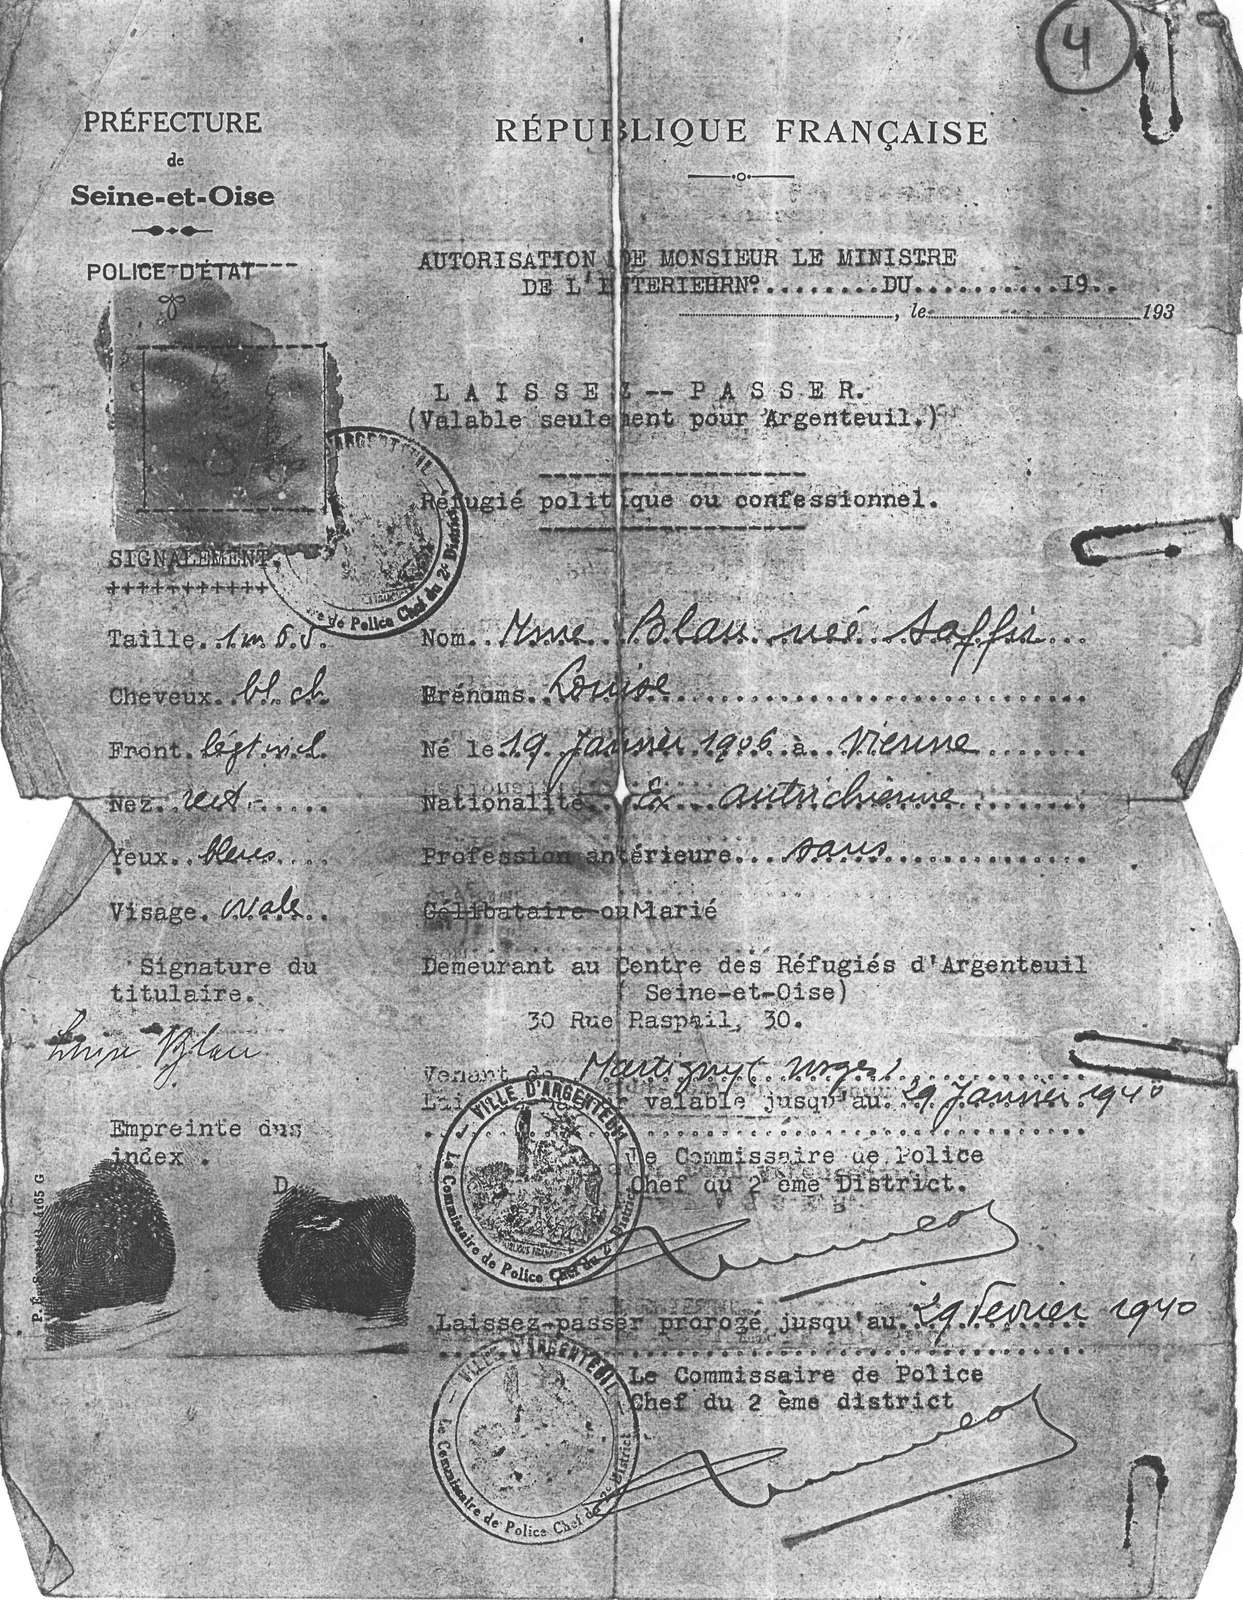 4
PRÉFECTURE
de
Seine-et-Oise
POLICE D'ÉTAT
RÉPUBLIQUE FRANÇAISE
AUTORISATION DE MONSIEUR LE MINISTRE
DE L'INTERIEURN°........DU...........19..
, le 193
LAISSEZ--PASSER.
(Valable seulement pour Argenteuil.)
Réfugié politique ou confessionnel.
D'ARGENTEUIL
de Police Chef du 2e District
SIGNALEMENT.
++++++++++
Taille. 1m65.
Cheveux. bl. ch
Front.
Nez. rect.
Yeux. bleus
Visage. ovale
Signature du
titulaire.
Louise Blau
Empreinte des
index.
D
Nom. Mme Blau née Saffir
Prénoms. Louise
Né le 19 Janvier 1906 à Vienne
Nationalité. Ex autrichienne
Profession antérieure. sans
Célibataire ou Marié
Demeurant au Centre des Réfugiés d'Argenteuil
( Seine-et-Oise)
30 Rue Raspail, 30.
Venant de Martigny (Vosges)
valable jusqu'au 29 Janvier 1940
Le Commissaire de Police
Chef du 2 ème District.
— VILLE D'ARGENTEUIL —
Le Commissaire de Police Chef du 2e District
Laissez-passer prorogé jusqu'au 29 Fevrier 1940
Le Commissaire de Police
Chef du 2 ème district
— VILLE D'ARGENTEUIL —
Le Commissaire de Police Chef du 2e District